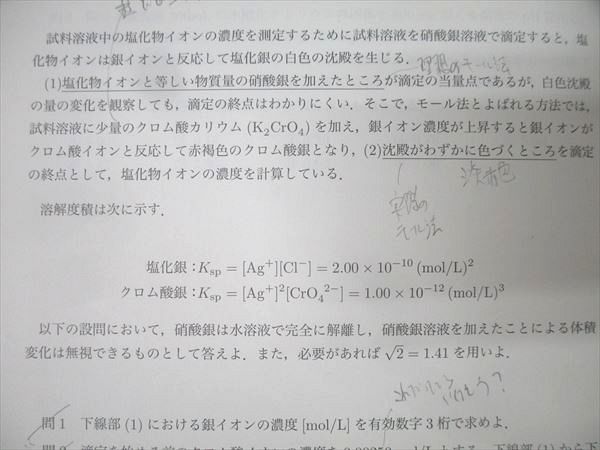 試料溶液中の塩化物イオンの濃度を測定するために試料溶液を硝酸銀溶液で滴定すると，塩
化物イオンは銀イオンと反応して塩化銀の白色の沈殿を生じる．
理想のモール法
(1)塩化物イオンと等しい物質量の硝酸銀を加えたところが滴定の当量点であるが，白色沈殿
の量の変化を観察しても，滴定の終点はわかりにくい．そこで，モール法とよばれる方法では，
試料溶液に少量のクロム酸カリウム (K₂CrO₄) を加え，銀イオン濃度が上昇すると銀イオンが
クロム酸イオンと反応して赤褐色のクロム酸銀となり，(2)沈殿がわずかに色づくところを滴定
の終点として，塩化物イオンの濃度を計算している．
実際の
モール法
溶解度積は次に示す．
塩化銀：Ksp = [Ag⁺][Cl⁻] = 2.00 × 10⁻¹⁰ (mol/L)²
クロム酸銀：Ksp = [Ag⁺]²[CrO₄²⁻] = 1.00 × 10⁻¹² (mol/L)³
以下の設問において，硝酸銀は水溶液で完全に解離し，硝酸銀溶液を加えたことによる体積
変化は無視できるものとして答えよ．また，必要があれば √2 = 1.41 を用いよ．
問1 下線部 (1) における銀イオンの濃度 [mol/L] を有効数字 3 桁で求めよ．